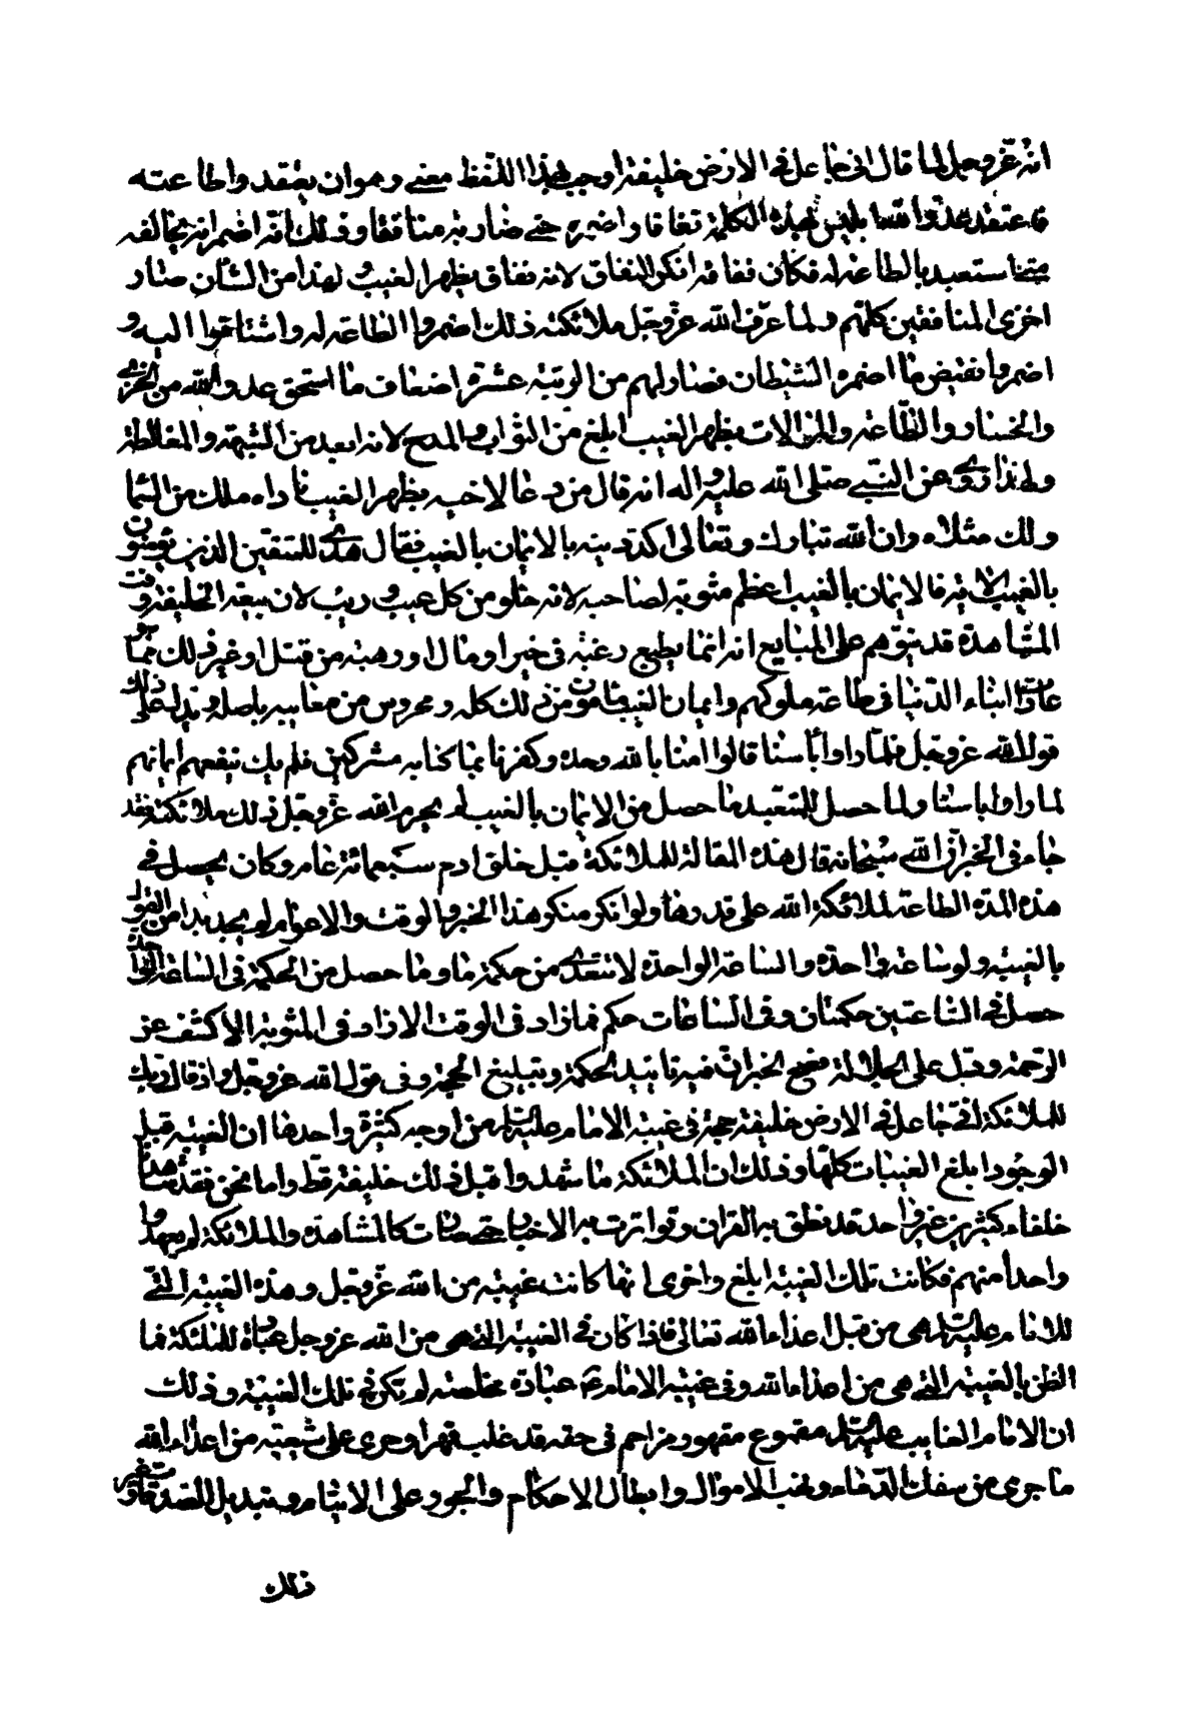 انه عزّ وجل لما قال انى جاعل فى الارض خليفة اوجب بهذا اللفظ معنى وهو ان يعتقد واطاعته
فاعتقد عدو الله ابليس بهذه الكلمة نفاقا واضمره حتى صار به منافقا وذلك انه اضمر انه يخالفه
متى استعبد بالطاعة له فكان نفاقه انكر النفاق لانه نفاق بظهر الغيب ولهذا من الشان صار
اخزى المنافقين كلهم ولما عرّف الله عزّ وجل ملائكته ذلك اضمروا الطاعة له واشتاقوا اليه و
اضمروا نقيض ما اضمره الشيطان فصار لهم من الرتبة عشرة اضعاف ما استحق عدو الله من الخزى
والخسار والطّاعة والموالات بظهر الغيب ابلغ من الثواب والمدح لانه ابعد من الشبهة والمغالطة
ولهذا روى عن النبى صلى الله عليه واله انه قال من دعا لاخيه بظهر الغيب ناداه ملك من السما
ولك مثلاه وان الله تبارك وتعالى اكد دينه بالايمان بالغيب فقال هدى للمتقين الذين يؤمنون
بالغيب الاية فالايمان بالغيب اعظم مثوبة لصاحبه لانه خلو من كل عيب وريب لان بيعة الخليفة وقت
المشاهدة قد يتوهم على المبايع انه انما يطيع رغبة فى خير او مال او رهبة من قتل او غير ذلك مما هو
عادة ابناء الدنيا فى طاعة ملوكهم وايمان الغيب مامون من ذلك كله ومحروس من معايبه باصله ويدل على ذلك
قول الله عزّ وجل فلمّا راوا باسنا قالوا امنا بالله وحده وكفرنا بما كنا به مشركين فلم يك ينفعهم ايمانهم
لما راوا باسنا ولما حصل للمتعبد ما حصل من الايمان بالغيب لم يحرم الله عزّ وجل ذلك ملائكته فقد
جاء فى الخبر انّ الله سبحانه قال هذه المقالة للملائكة قبل خلق ادم سبعمائة عام وكان يحصل فى
هذه المدة الطاعة لملائكة الله على قدرها ولو انكر منكر هذا الخبر والوقت والاعوام لم يجد بدا من القول
بالغيبة ولو ساعة واحدة والساعة الواحدة لا تتعدى من حكمة ما وما حصل من الحكمة فى الساعة الواحدة
حصل فى الساعتين حكمتان وفى الساعات حكم فما زاد فى الوقت الا زاد فى المثوبة الا كشف عن
الرحمة ودل على الجلالة فصح الخبر انّ فيه تاييد الحكمة وتبليغ الحجة وفى قول الله عزّ وجل واذ قال ربك
للملائكة انى جاعل فى الارض خليفة حجة فى غيبة الامام عليه السلام من اوجه كثيرة واحدها ان الغيبة قبل
الوجود ابلغ الغيبات كلها وذلك ان الملائكة ما شهدوا قبل ذلك خليفة قط واما نحن فقد شاهدنا
خلفاء كثيرين غير واحد قد نطق به القران وتواترت به الاخبار حتى صارت كالمشاهدة والملائكة لم يعهدوا
واحدا منهم فكانت تلك الغيبة ابلغ واخرى انها كانت غيبة من الله عزّ وجل وهذه الغيبة التى
للامام عليه السلام هى من قبل اعداء الله تعالى فاذا كان فى الغيبة التى هى من الله عزّ وجل عبادة للملئكة فما
الظن بالغيبة التى هى من اعداء الله وفى غيبة الامام ع عبادة مخلصة لم تكن فى تلك الغيبة وذلك
ان الامام الغايب عليه السلام مقموع مقهور مزاحم فى حقه قد غلب قهرا وجرى على شيعته من اعداء الله
ما جرى من سفك الدماء ونهب الاموال وابطال الاحكام والجور على الايتام وتبديل الصدقات وغير
ذلك